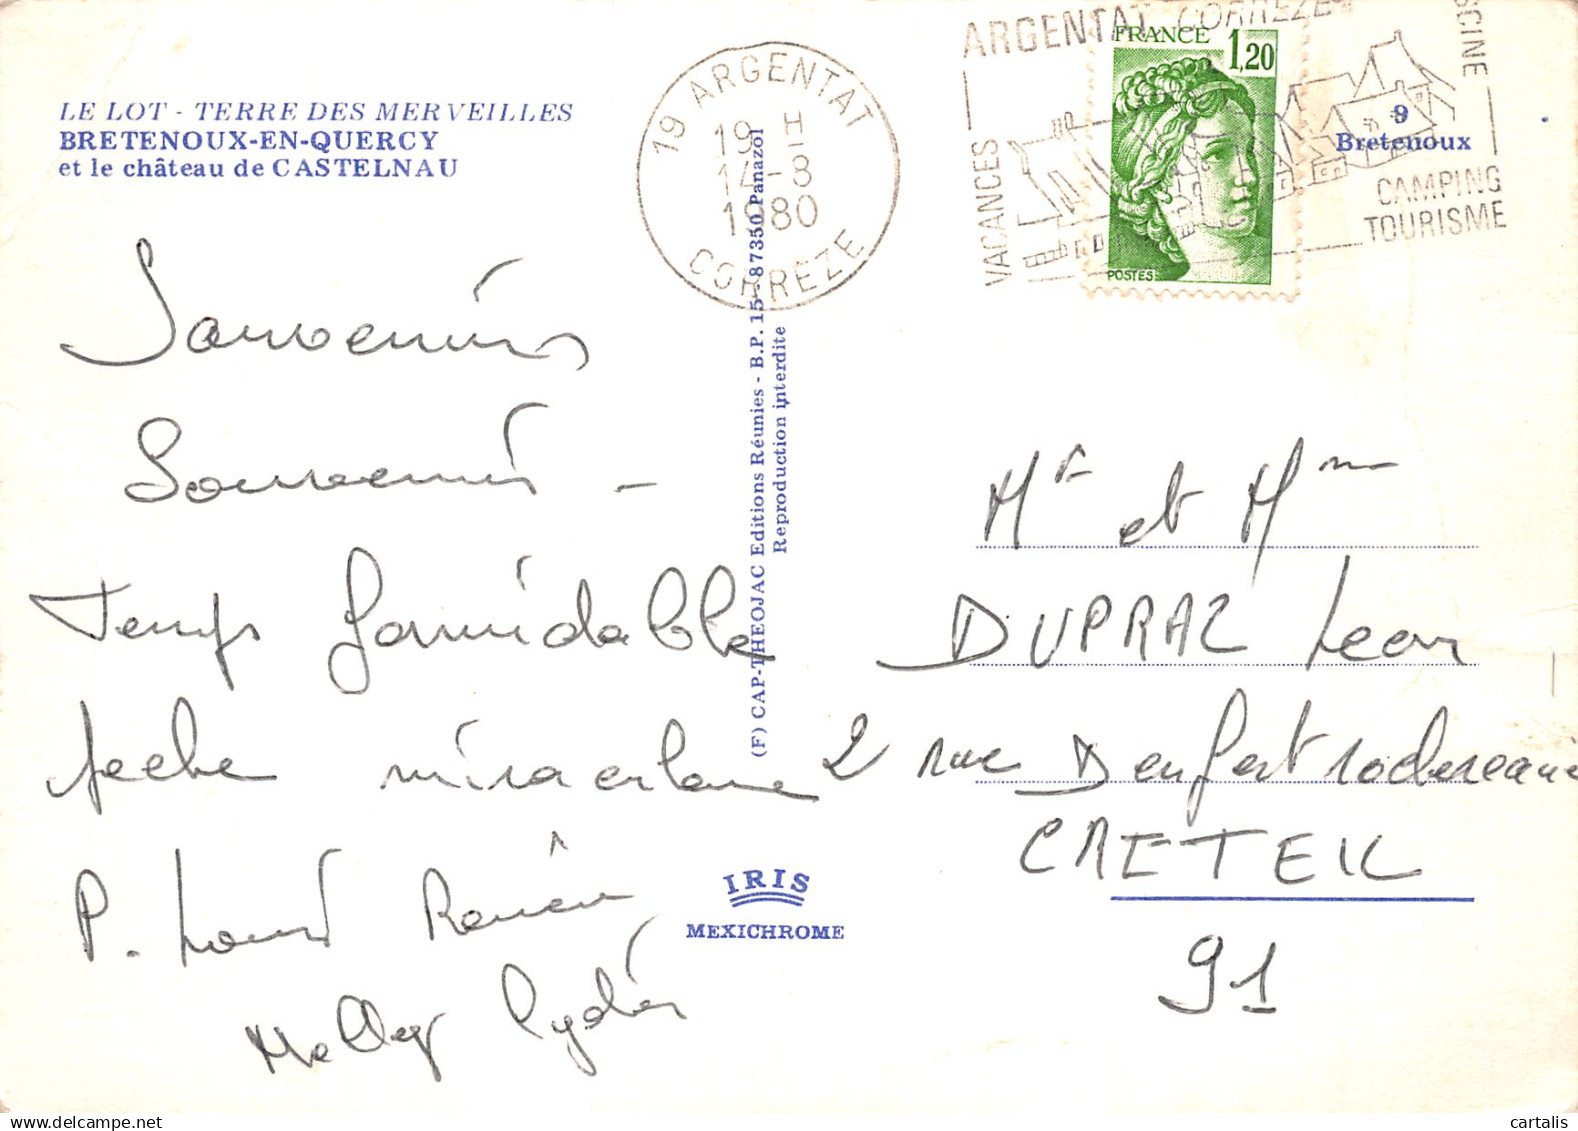 LE LOT - TERRE DES MERVEILLES
BRETENOUX-EN-QUERCY
et le château de CASTELNAU
19 ARGENTAT
19 H
14-8
1980
CORREZE
ARGENTAT CORREZE
VACANCES
SCINE
CAMPING
TOURISME
FRANCE
1,20
POSTES
9
Bretenoux
Souvenirs
Souvenirs -
Temps formidable
peche
P.
(F) CAP-THEOJAC Editions Réunies - B.P. 15 - 87350 Panazol
Reproduction interdite
IRIS
MEXICHROME
Mr et Mme
DUPRAZ Leon
2 rue Denfert rochereau
CRETEIL
91
cartalis